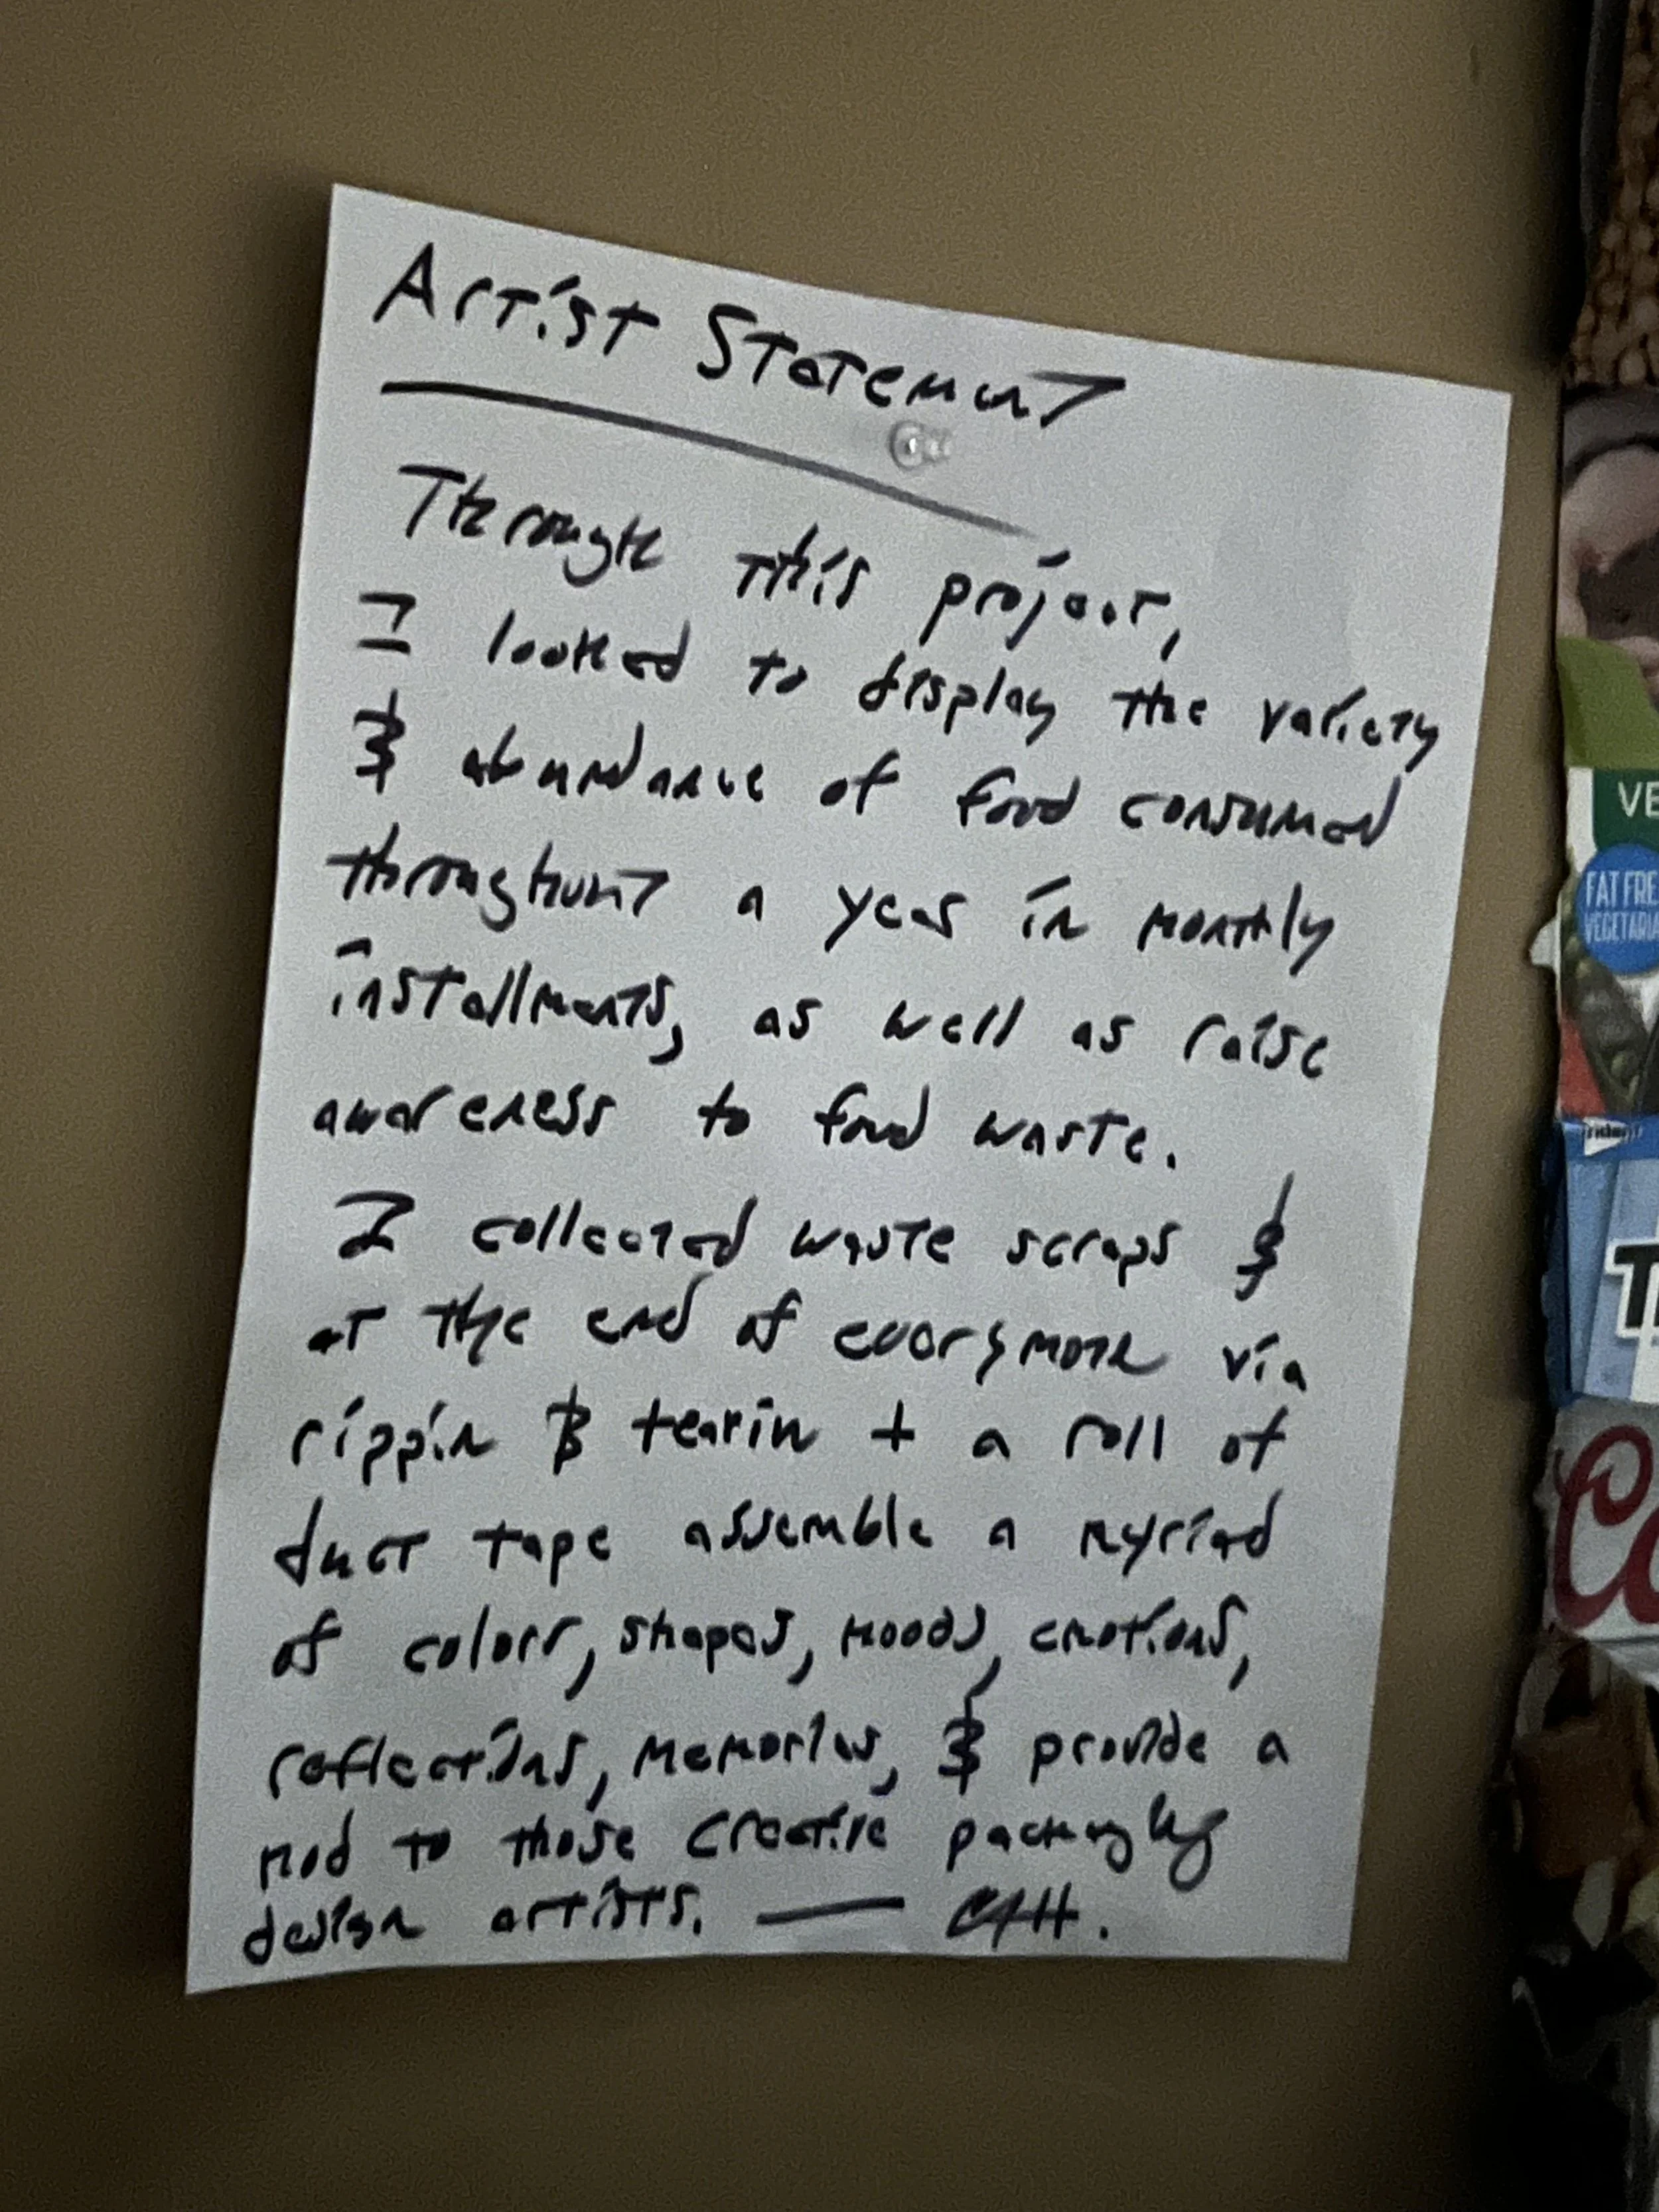 Artist Statement
Through this project,
I looked to display the variety
& abundance of food consumed
throughout a year in monthly
installments, as well as raise
awareness to food waste.
I collected waste scraps &
at the end of every month via
rippin & tearin + a roll of
duct tape assemble a myriad
of colors, shapes, moods, emotions,
reflections, memories, & provide a
nod to those creative packaging
design artists. —
VE
FAT FRE
VEGETARIA
Trident
T
Co